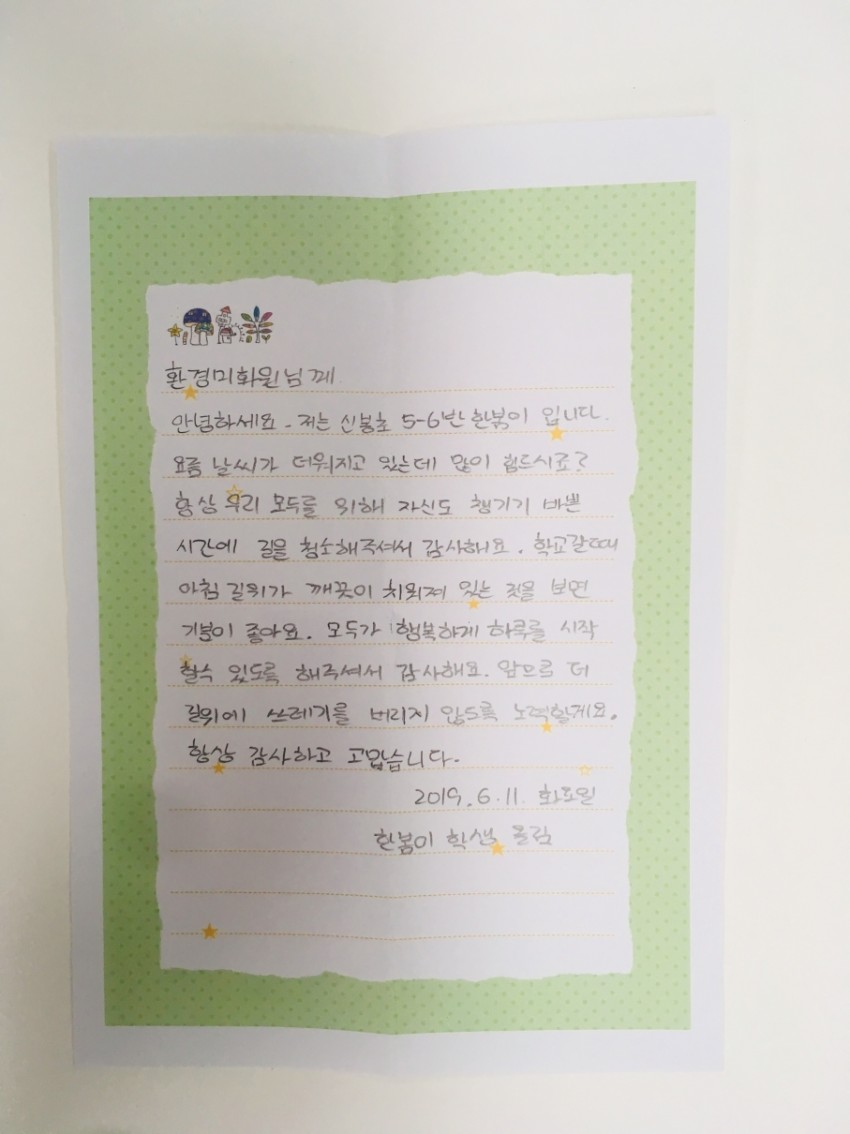 환경미화원님께
안녕하세요. 저는 신봉초 5-6반 한봄이 입니다.
요즘 날씨가 더워지고 있는데 많이 힘드시죠?
항상 우리 모두를 위해 자신도 챙기기 바쁜
시간에 길을 청소해주셔서 감사해요. 학교갈때
아침 길위가 깨끗이 치워져 있는 것을 보면
기분이 좋아요. 모두가 행복하게 하루를 시작
할수 있도록 해주셔서 감사해요. 앞으로 더
길위에 쓰레기를 버리지 않도록 노력할게요.
항상 감사하고 고맙습니다.
2019. 6. 11. 화요일
한봄이 학생 올림